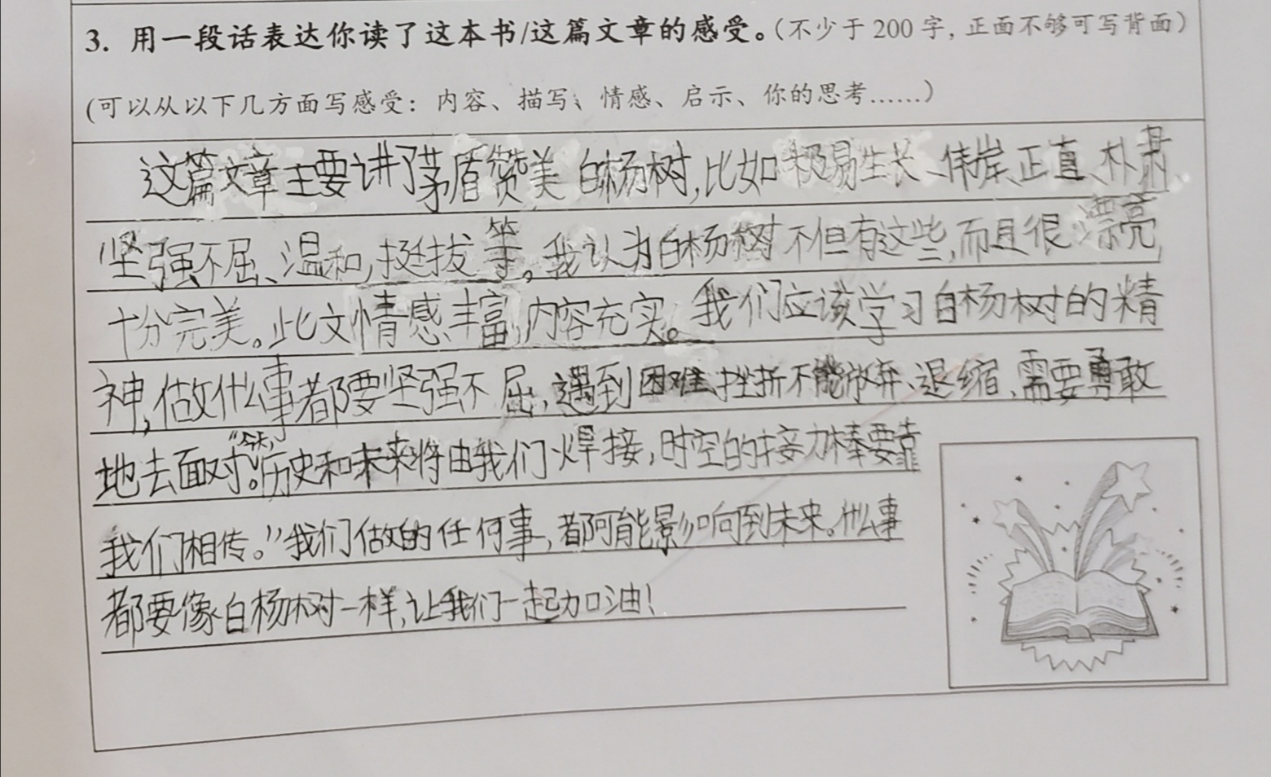 3. 用一段话表达你读了这本书/这篇文章的感受。(不少于 200 字, 正面不够可写背面)
(可以从以下几方面写感受：内容、描写、情感、启示、你的思考……)
这篇文章主要讲了茅盾赞美白杨树,比如极易生长、伟岸、正直、朴肃、
坚强不屈、温和,挺拔等。我认为白杨树不但有这些,而且很漂亮,
十分完美。此文情感丰富,内容充实。我们应该学习白杨树的精
神,做什么事都要坚强不屈,遇到困难、挫折不能放弃、退缩,需要勇敢
地去面对。“今天,历史和未来将由我们焊接,时空的接力棒要靠
我们相传。”我们做的任何事,都可能影响到未来。什么事
都要像白杨树一样,让我们一起加油!